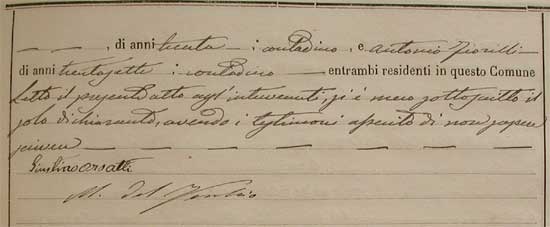 — — , di anni trenta — , contadino , e Antonio Fiorilli
di anni trentasette , contadino — entrambi residenti in questo Comune
Letto il presente atto agl'intervenuti, si è meco sottoscritto il
solo dichiarante, avendo i testimoni asserito di non sapere
scrivere — — — — — — —
Orsatti
M. del Vecchio